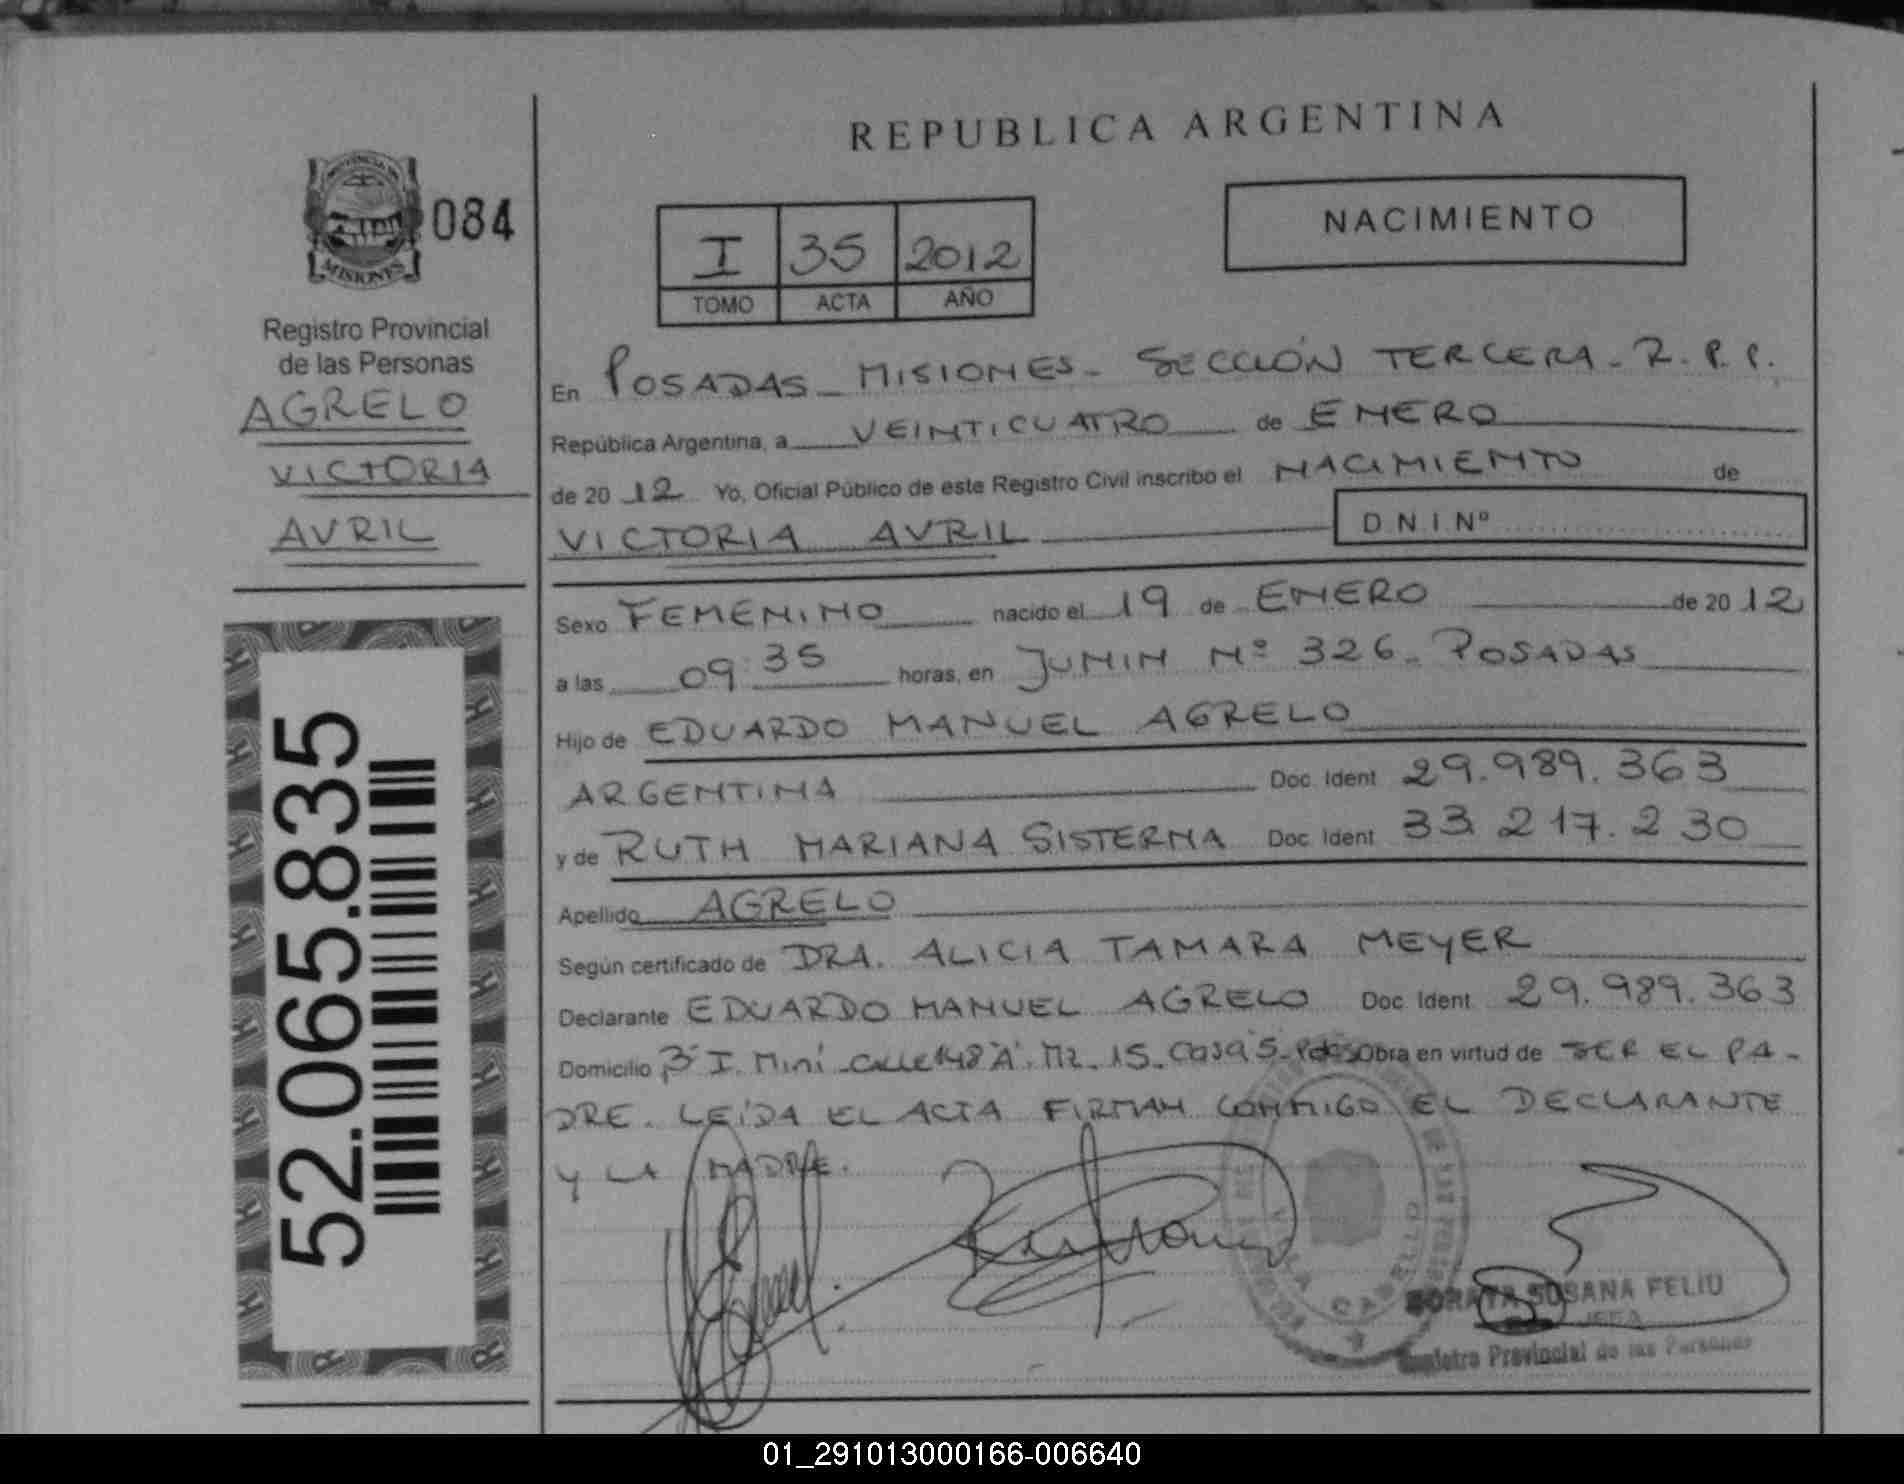 REPUBLICA ARGENTINA
PROVINCIA DE
MISIONES
084
Registro Provincial
de las Personas
AGRELO
VICTORIA
AVRIL
52.065.835
I 35 2012
TOMO ACTA AÑO
NACIMIENTO
En POSADAS - MISIONES - SECCIÓN TERCERA - R.P.P.
República Argentina, a VEINTICUATRO de ENERO
de 20 12 Yo, Oficial Público de este Registro Civil inscribo el NACIMIENTO de
VICTORIA AVRIL D.N.I Nº
Sexo FEMENINO nacido el 19 de ENERO de 20 12
a las 09:35 horas, en JUNIN Nº 326 - POSADAS
Hijo de EDUARDO MANUEL AGRELO
ARGENTINA Doc. Ident 29.989.363
y de RUTH MARIANA SISTERNA Doc. Ident 33.217.230
Apellido AGRELO
Según certificado de DRA. ALICIA TAMARA MEYER
Declarante EDUARDO MANUEL AGRELO Doc Ident 29.989.363
Domicilio I. Miní - Calle 148 "A" - Mz - 15 - Casa 5 - Obra en virtud de SER EL PA-
DRE. LEÍDA EL ACTA FIRMAN CONMIGO EL DECLARANTE
Y LA MADRE.
VILLA CABELLO
SORAYA SUSANA FELIU
JEFA
Registro Provincial de las Personas
01_291013000166-006640